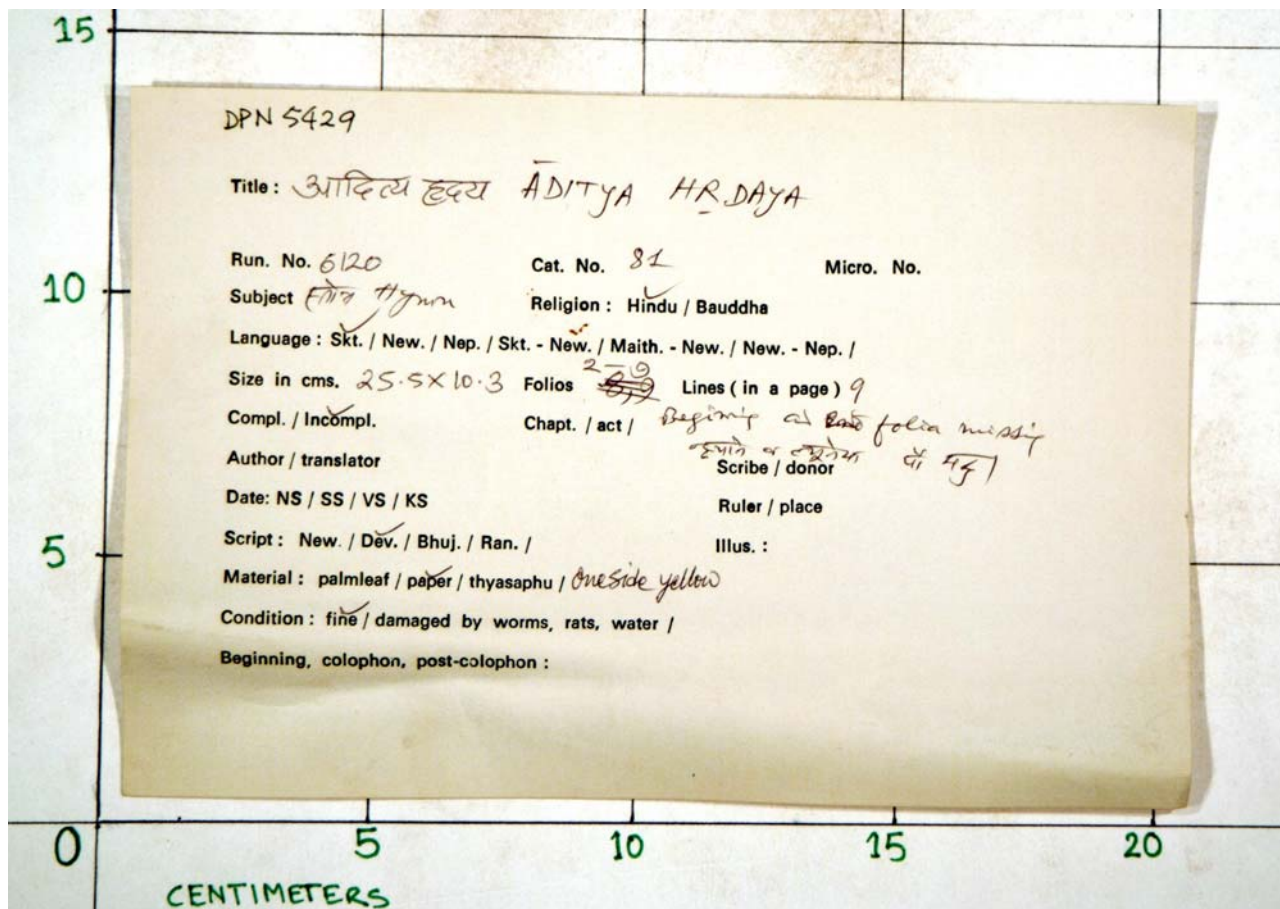 15
DPN 5429
Title : आदित्य हृदय ĀDITYA HṚDAYA
Run. No. 6120 Cat. No. 81 Micro. No.
10
Subject स्तोत्र Hymn Religion : Hindu / Bauddha
Language : Skt. / New. / Nep. / Skt. - New. / Maith. - New. / New. - Nep. /
Size in cms. 25.5×10.3 Folios 2-9 Lines ( in a page ) 9
Compl. / Incompl. Chapt. / act / folia missing
Author / translator Scribe / donor
Date: NS / SS / VS / KS Ruler / place
5
Script : New. / Dev. / Bhuj. / Ran. / Illus. :
Material : palmleaf / paper / thyasaphu / One side yellow
Condition : fine / damaged by worms, rats, water /
Beginning, colophon, post-colophon :
0 5 10 15 20
CENTIMETERS